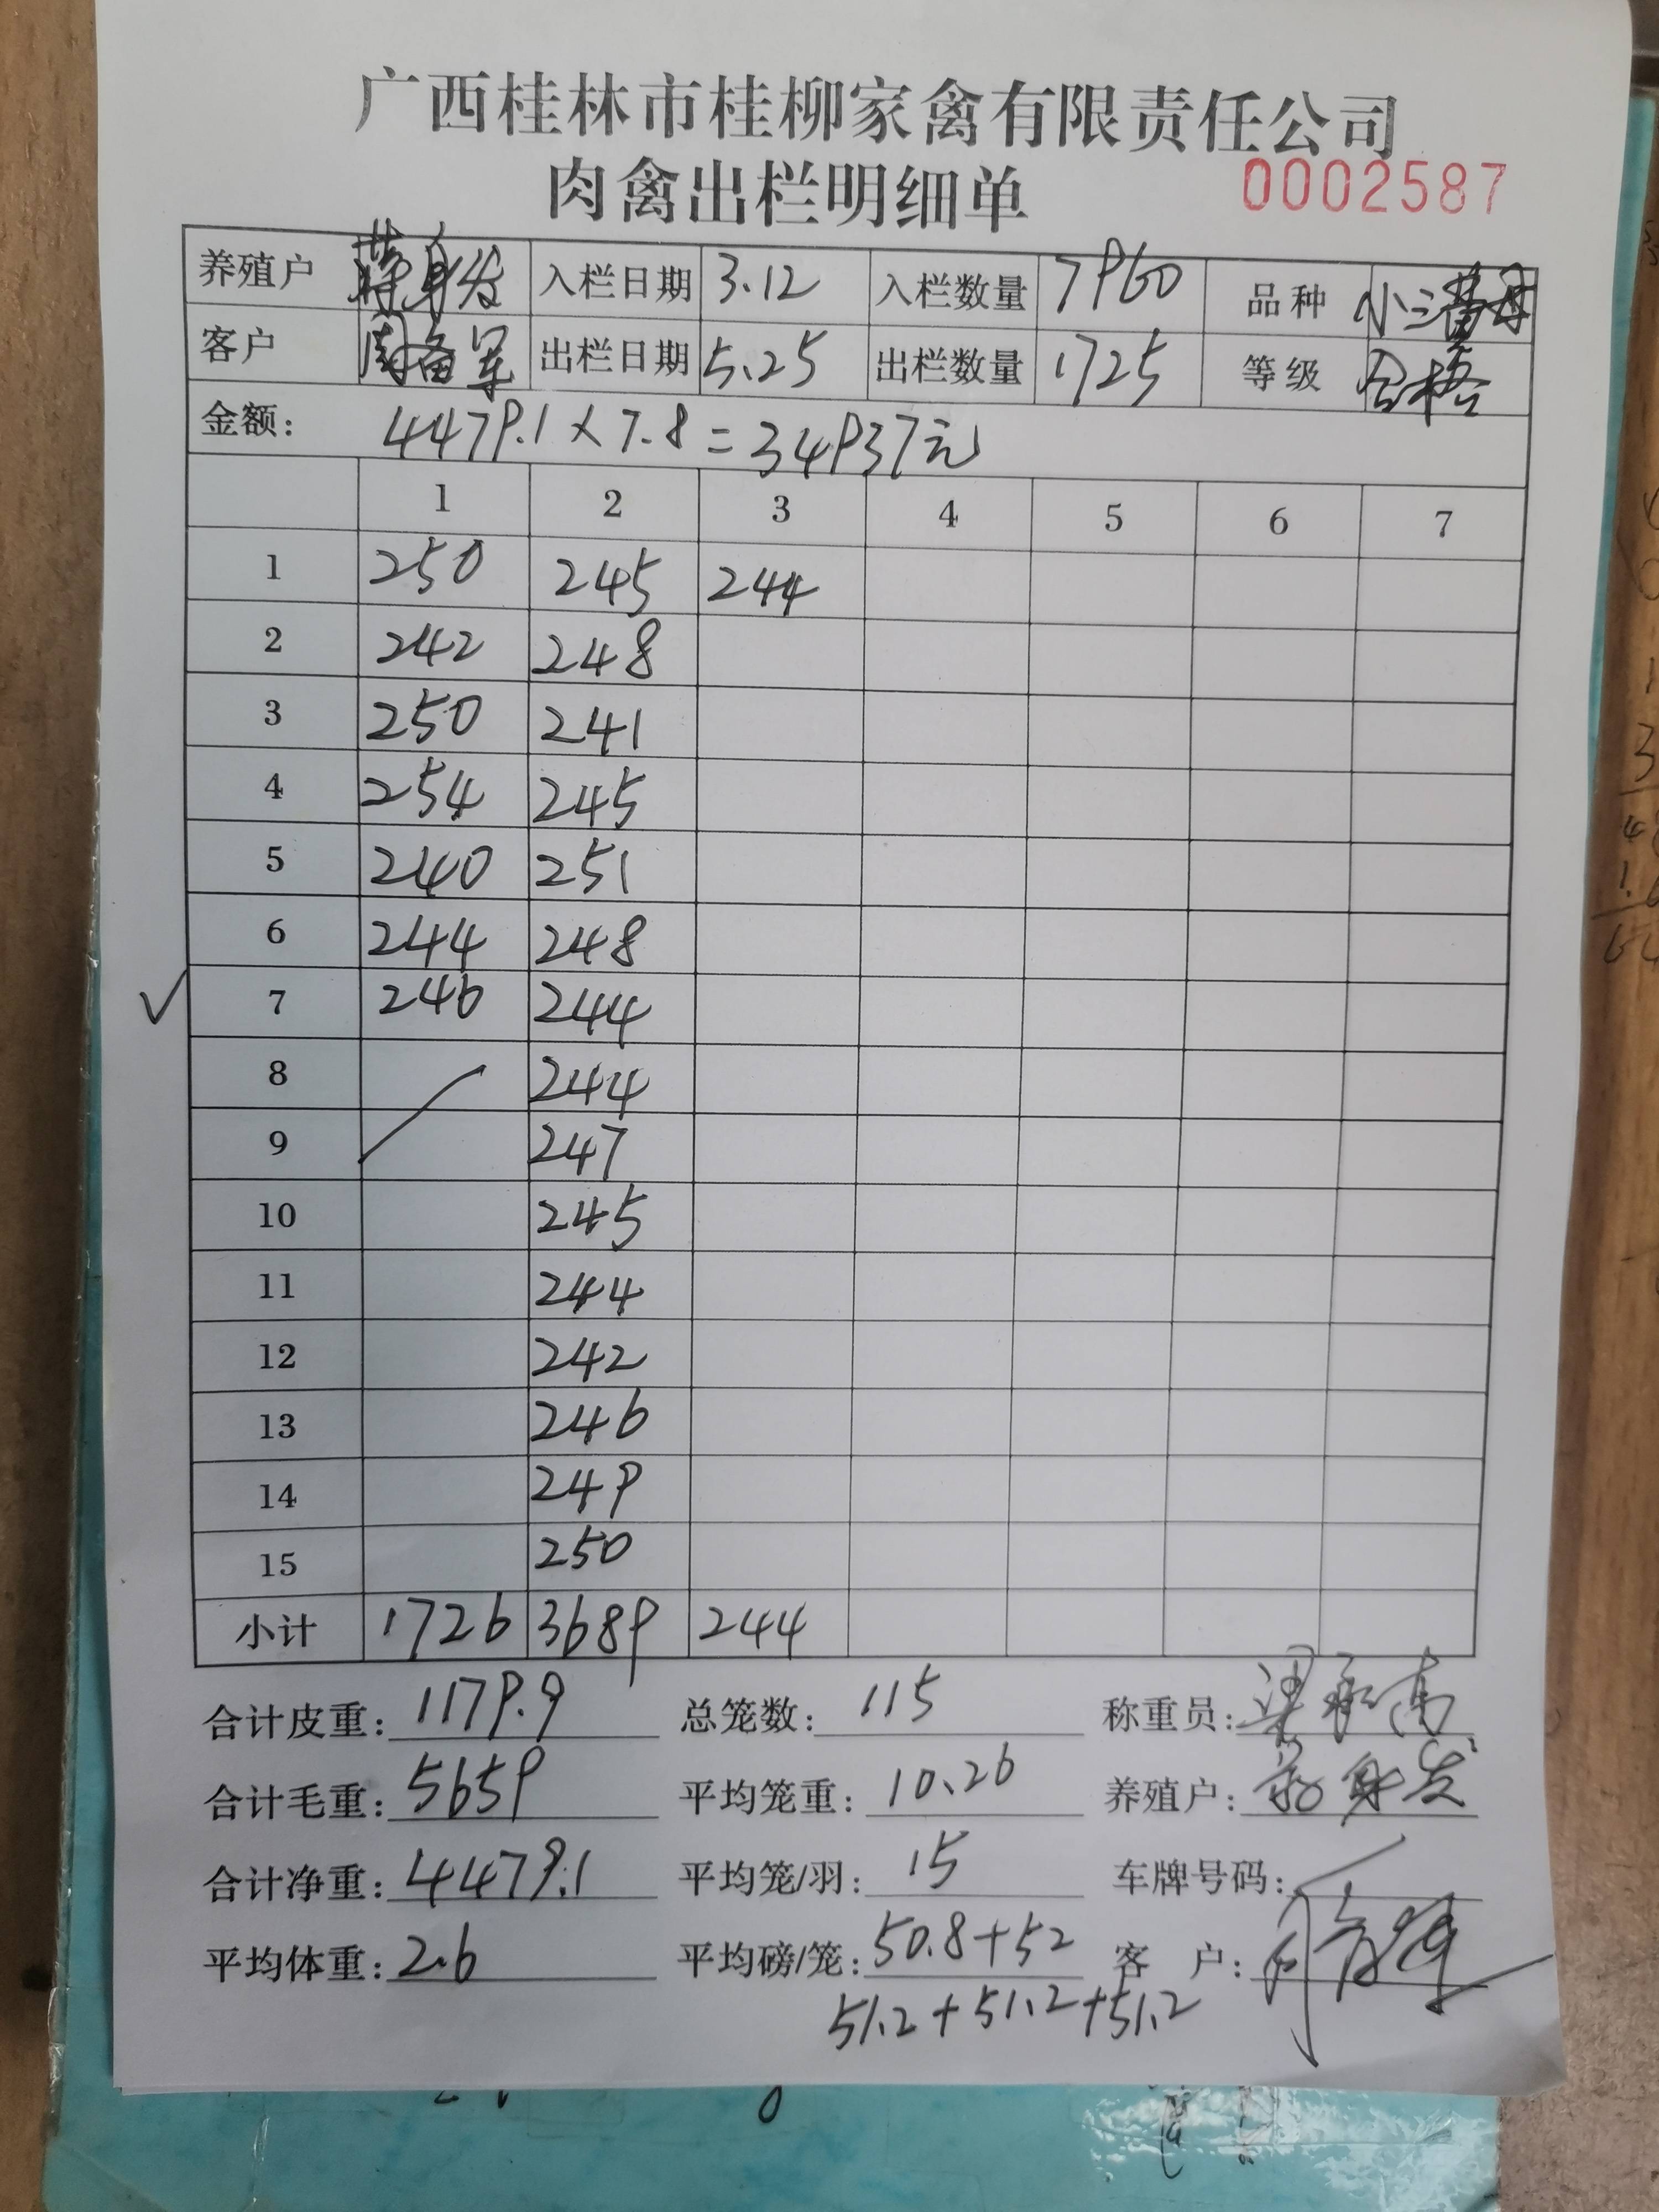 广西桂林市桂柳家禽有限责任公司
肉禽出栏明细单 0002587
养殖户 蒋身发 入栏日期 3.12 入栏数量 7960 品种 小三黄母
客户 出栏日期 5.25 出栏数量 1725 等级 合格
金额: 4479.1×7.8=34937元
1 2 3 4 5 6 7
1 250 245 244
2 242 248
3 250 241
4 254 245
5 240 251
6 244 248
√ 7 246 244
8 244
9 247
10 245
11 244
12 242
13 246
14 249
15 250
小计 1726 3689 244
合计皮重: 1179.9 总笼数: 115 称重员:
合计毛重: 5659 平均笼重: 10.26 养殖户: 蒋身发
合计净重: 4479.1 平均笼/羽: 15 车牌号码:
平均体重: 2.6 平均磅/笼: 50.8+52 客 户:
51.2+51.2+51.2